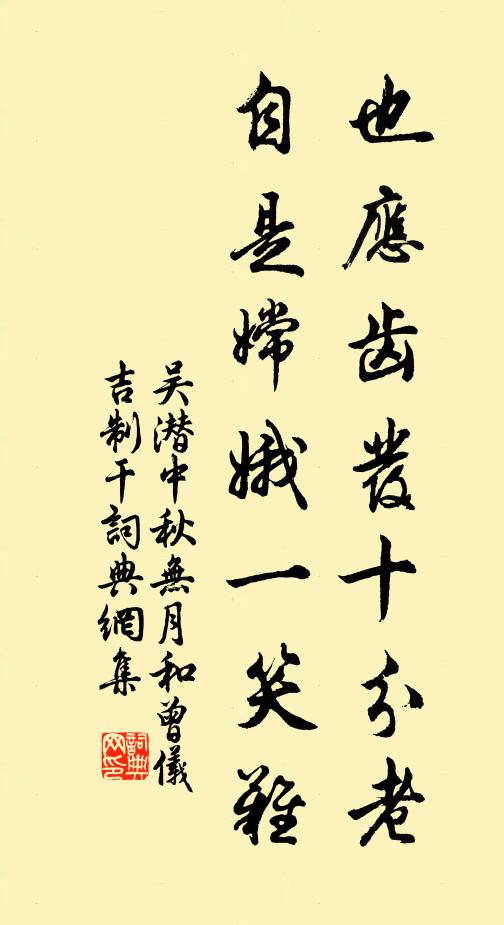 也應齒發十分老
自是嫦娥一笑難
吳潛中秋無月和曾儀
吉制干詞典網集
詞典
网印